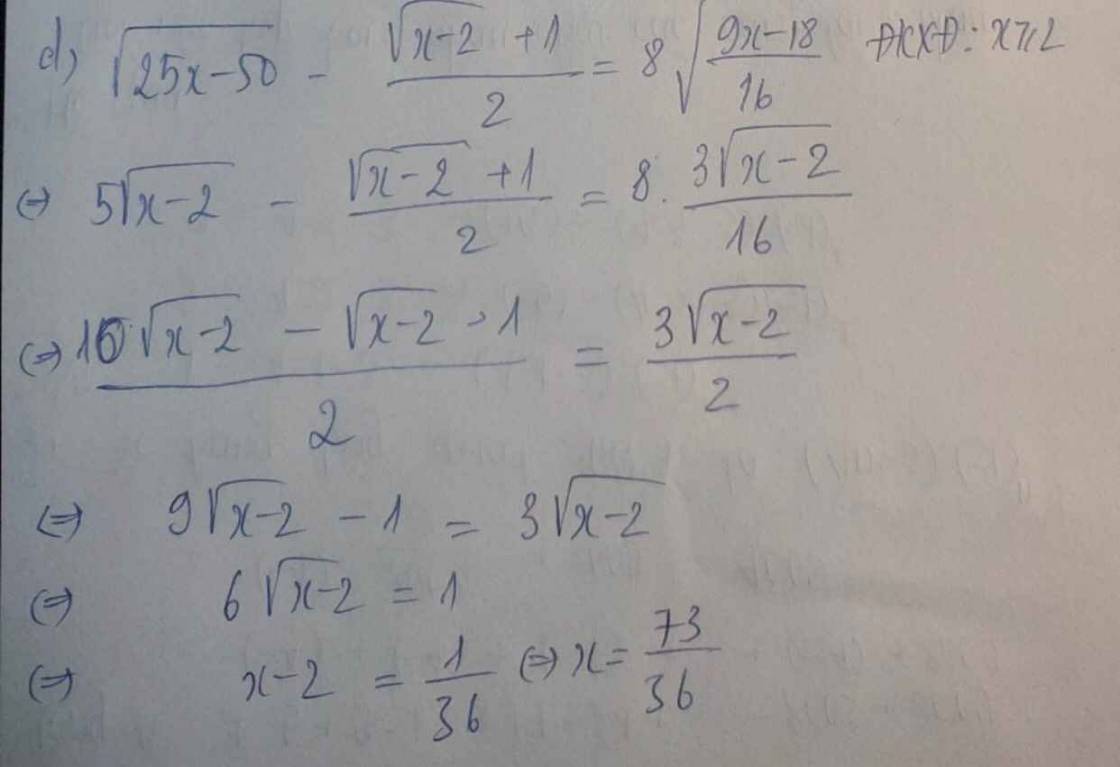 d) √(25x-50) - (√(x-2) + 1)/2 = 8√((9x-18)/16) ĐKXĐ: x≥2
(=) 5√(x-2) - (√(x-2) + 1)/2 = 8. (3√(x-2))/16
(=) (10√(x-2) - √(x-2) - 1)/2 = (3√(x-2))/2
(=) 9√(x-2) - 1 = 3√(x-2)
(=) 6√(x-2) = 1
(=) x-2 = 1/36 (=) x = 73/36